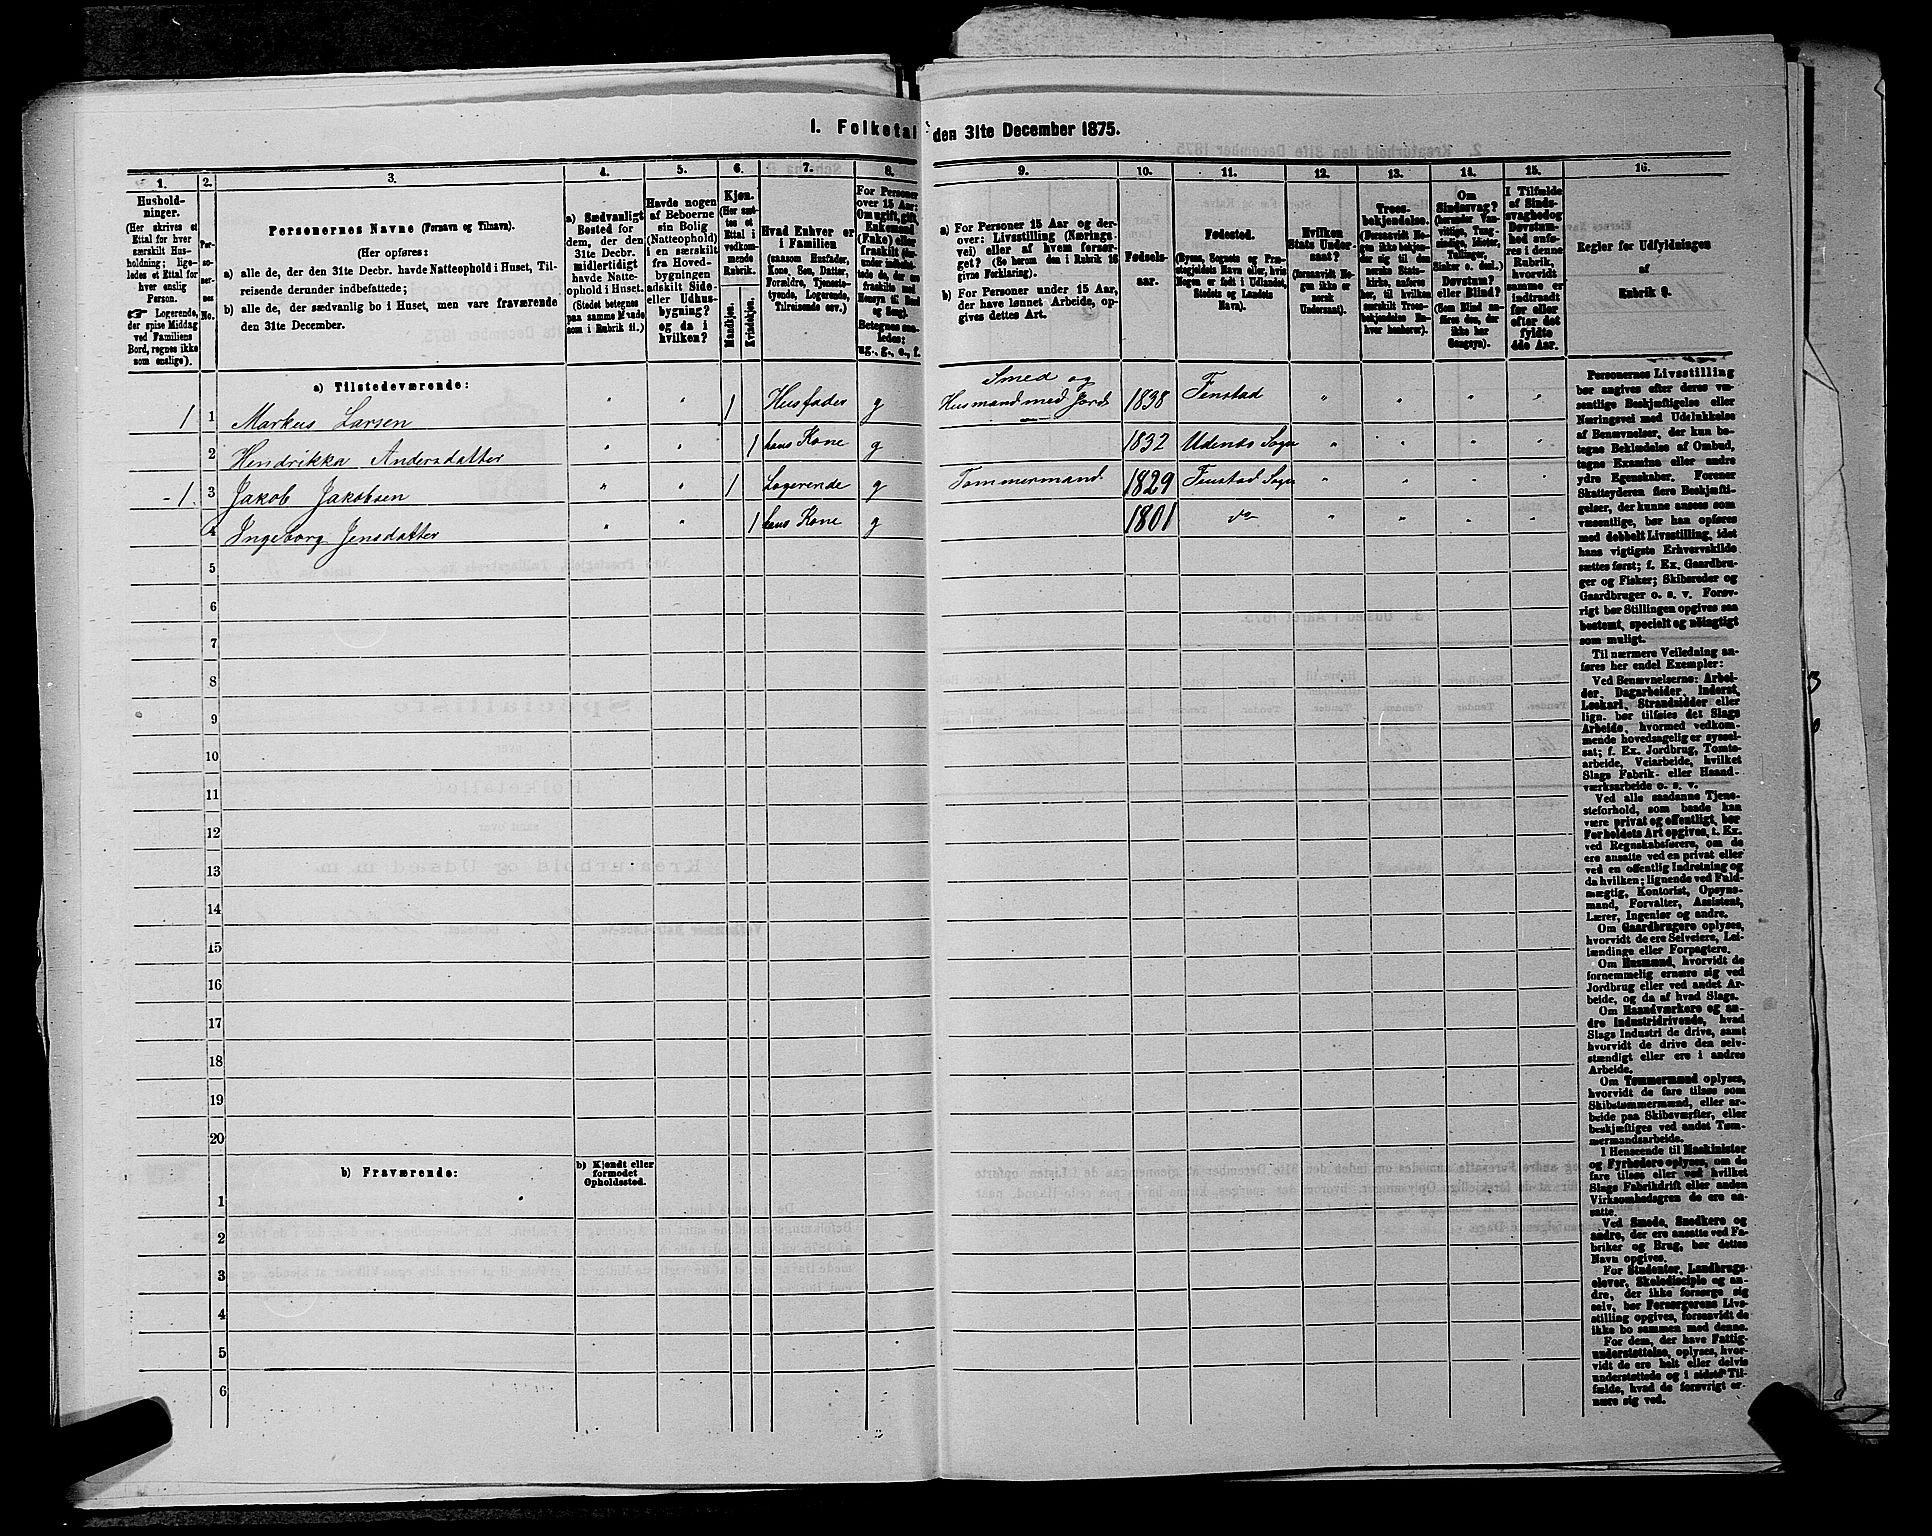 1. Folketal den 31te December 1875.
1. 2. 3. 4. 5. 6. 7. 8. 9. 10. 11. 12. 13. 14. 15. 16.
Husholdninger.
(Her skrives et
Ettal for hver
særskilt Husholdning;
ligeledes et Ettal for
hver enslig
Person.
☞ Logerende,
der spise Middag
ved Familiens
Bord, regnes ikke
som enslige).
Personernes No.
Personernes Navne (Fornavn og Tilnavn).
(Her opføres:
a) alle de, der den 31te Decbr. havde Natteophold i Huset, Tilreisende derunder indbefattede;
b) alle de, der sædvanlig bo i Huset, men vare fraværende
den 31te December.
a) Sædvanligt
Bosted for
dem, der den
31te Decbr.
midlertidigt
havde Natteophold
i Huset.
(Stedet betegnes
paa samme Maade
som i Rubrik 11.)
Havde nogen
af Beboerne
sin Bolig
(Natteophold)
i en særskilt
fra Hovedbygningen
adskilt Side-
eller Udhusbygning?
og da i
hvilken?
Kjøn.
(Her sættes et
Ettal i
vedkommende
Rubrik.
Mandkjøn.
Kvindekjøn.
Hvad Enhver er
i Familien
(saasom Husfader,
Kone, Søn, Datter,
Forældre, Tjenestetyende,
Logerende,
Tilreisende osv.)
For Personer
over 15 Aar:
Om ugift, gift,
Enkemand
(Enke) eller
fraskilt
Betegnes saaledes:
ug., g., e., f.
a) For Personer 15 Aar og derover:
Livsstilling (Næringsvei)
eller af hvem forsørget?
(Se herom den i Rubrik 16
givne Forklaring).
b) For Personer under 15 Aar,
der have lønnet Arbeide, opgives
dettes Art.
Fødselsaar.
Fødested.
(Byens, Sognets og Præstegjeldets
Navn eller, hvis
Nogen er født i Udlandet,
Stedets og Landets
Navn).
Hvilken
Stats Undersaat?
(forsaavidt Nogen
ikke er
norsk
Undersaat).
Troesbekjendelse.
(Forsaavidt Nogen
ikke bekjender
sig til den
norske Statskirke,
anføres
her, til hvilken
særskilt Troesbekjendelse
Enhver henhører).
Om
Sindssvag?
(herunder Vanvittige,
Tungsindige,
Idioter,
Tullinger,
Sinker o. desl.)
Døvstum?
eller Blind?
(Som Blind anføres
den, der
ikke har
Gangsyn).
I Tilfælde
af Sindssvaghed og
Døvstumhed
anføres
i denne
Rubrik,
hvorvidt
samme er
indtraadt
før eller
efter det
fyldte
4de Aar.
Regler for Udfyldningen
af
Rubrik 9.
a) Tilstedeværende:
1 1 Markus Larsen " " 1 Husfader g Smed og
Husmand med Jord 1838 Fenstad " " " "
2 Hendrikka Andersdatter " " 1 hans Kone g 1832 Udenæs Sogn " " " "
-1. 3 Jakob Jakobsen " " 1 Logerende g Tømmermand 1829 Fenstad Sogn " " " "
4 Ingeborg Jensdatter " " 1 hans Kone g 1801 do " " " "
5
6
7
8
9
10
11
12
13
14
15
16
17
18
19
20
b) Fraværende:
b) Kjendt eller
formodet
Opholdssted.
1
2
3
4
5
6
Personernes Livsstilling
bør angives efter deres væsentlige
Beskjæftigelse eller
Næringsvei med Udelukkelse
af Benævnelser, der kun betegne
Beklædelse af Ombud,
tagne Examina eller andre
ydre Egenskaber. Forener
Skatteyderen flere Beskjæftigelser,
der kunne ansees som
væsentlige, bør han opføres
med dobbelt Livsstilling, idet
hans vigtigste Erhvervskilde
sættes først; f. Ex. Gaardbruger
og Fisker; Skibsreder og
Gaardbruger o. s. v. Forøvrigt
bør Stillingen opgives saa
bestemt, specielt og nøiagtigt
som muligt.
Til nærmere Veiledning anføres
her endel Exempler:
Ved Benævnelserne: Arbeider,
Dagarbeider, Inderst,
Løskarl, Strandsidder eller
lign. bør tilføies det Slags
Arbeide, hvormed vedkommende
hovedsagelig er sysselsat;
f. Ex. Jordbrug, Tomtearbeide,
Veiarbeide, hvilket
Slags Fabrik- eller Haandværksarbeide
o. s. v.
Ved alle saadanne Tjenesteforhold,
som baade kan
være privat og offentligt, bør
Forholdets Art opgives, t. Ex.
ved Regnskabsførere, om de
ere ansatte ved en privat eller
ved en offentlig Indretning og
da hvilken; lignende ved Fuldmægtig,
Kontorist, Opsynsmand,
Forvalter, Assistent,
Lærer, Ingeniør og andre.
Om Gaardbrugere oplyses,
hvorvidt de ere Selveiere, Leilændinge
eller Forpagtere.
Om Husmænd, hvorvidt de
fornemmelig ernære sig ved
Jordbrug eller ved andet Arbeide,
og da af hvad Slags.
Om Haandværkere og andre
Industridrivende, hvad
Slags Industri de drive, samt
hvorvidt de drive den selvstændigt
eller ere i andres
Arbeide.
Om Tømmermænd oplyses,
hvorvidt de fare tilsøs som
Skibstømmermænd, eller arbeide
paa Skibsværfter, eller
beskjæftiges ved andet Tømmermandsarbeide.
I Henseende til Maskinister
og Fyrbødere oplyses, om de
fare tilsøs eller ved hvilket
Slags Fabrikdrift eller anden
Virksomhedsgren de ere ansatte.
Ved Smede, Snedkere og
andre, der ere ansatte ved Fabriker
og Brug, bør dettes
Navn opgives.
For Studenter, Landbrugselever,
Skoledisciple og andre,
der ikke forsørge sig
selv, bør Forsørgerens Livsstilling
opgives, forsaavidt de
ikke bo sammen med denne.
For dem, der have Fattigunderstøttelse,
oplyses, hvorvidt
de ere helt eller delvis
understøttede og i sidste Tilfælde,
hvad de forøvrigt ernære
sig ved.